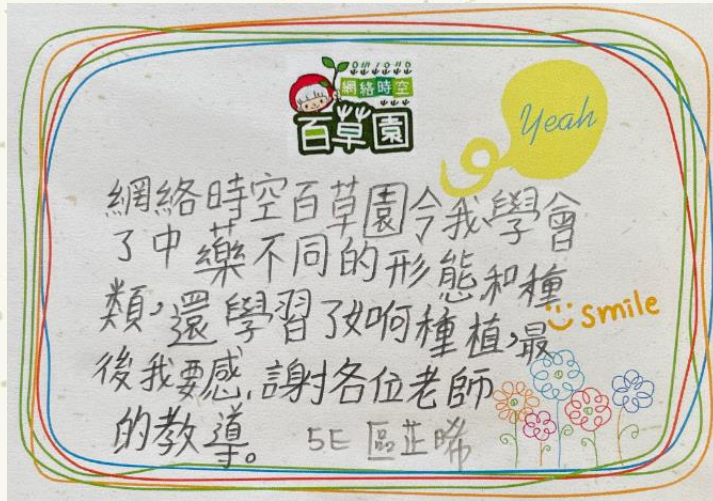 網絡時空
百草園
Yeah
網絡時空百草園令我學會
了中藥不同的形態和種
類，還學習了如何種植，最
smile
後我要感謝各位老師
的教導。
5E 區芷晞